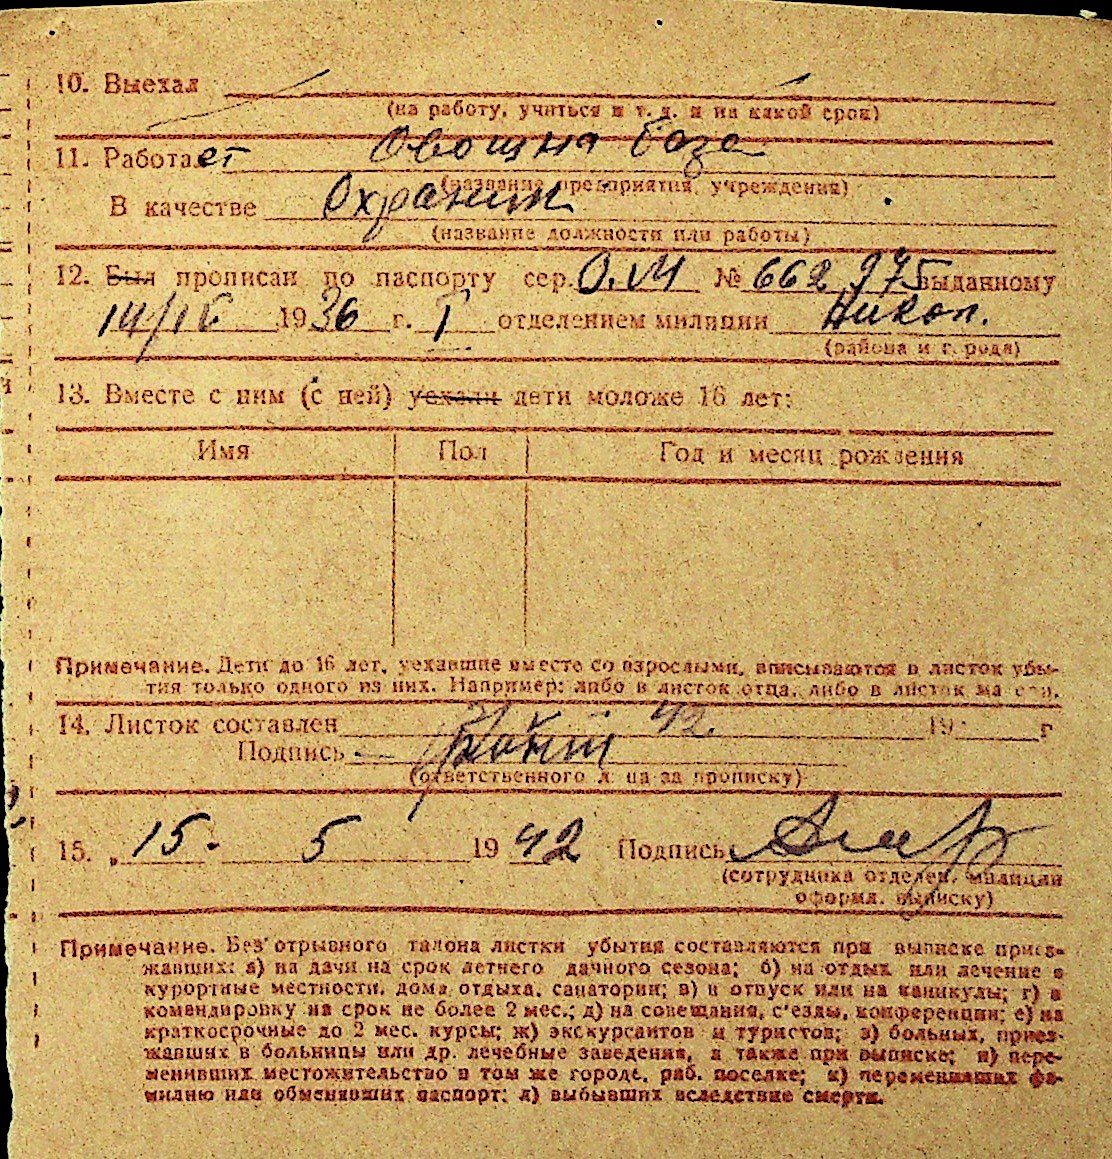 10. Выехал
(на работу, учиться и т. д. и на какой срок)
11. Работает Овощна база
(название предприятия, учреждения)
В качестве Охраник
(название должности или работы)
12. Был прописан по паспорту сер. О.М № 662 975 выданному
14/IV 1936 г. I отделением милиции Никоп.
(района и города)
13. Вместе с ним (с ней) уехали дети моложе 16 лет:
Имя Пол Год и месяц рождения
Примечание. Дети до 16 лет, уехавшие вместе со взрослыми, вписываются в листок убы-
тия только одного из них. Например: либо в листок отца, либо в листок матери.
14. Листок составлен 42. 19 г
Подпись
(ответственного лица за прописку)
15. „15. 5 1942 Подпись
(сотрудника отделен. милиции
оформл. выписку)
Примечание. Без отрывного талона листки убытия составляются при выписке приез-
жавших: а) на дачи на срок летнего дачного сезона; б) на отдых или лечение в
курортные местности, дома отдыха, санатории; в) в отпуск или на каникулы; г) в
командировку на срок не более 2 мес.; д) на совещания, с'езды, конференции; е) на
краткосрочные до 2 мес. курсы; ж) экскурсантов и туристов; з) больных, приез-
жавших в больницы или др. лечебные заведения, а также при выписке; и) пере-
менивших местожительство в том же городе, раб. поселке; к) переменивших фа-
милию или обменявших паспорт; л) выбывших вследствие смерти.